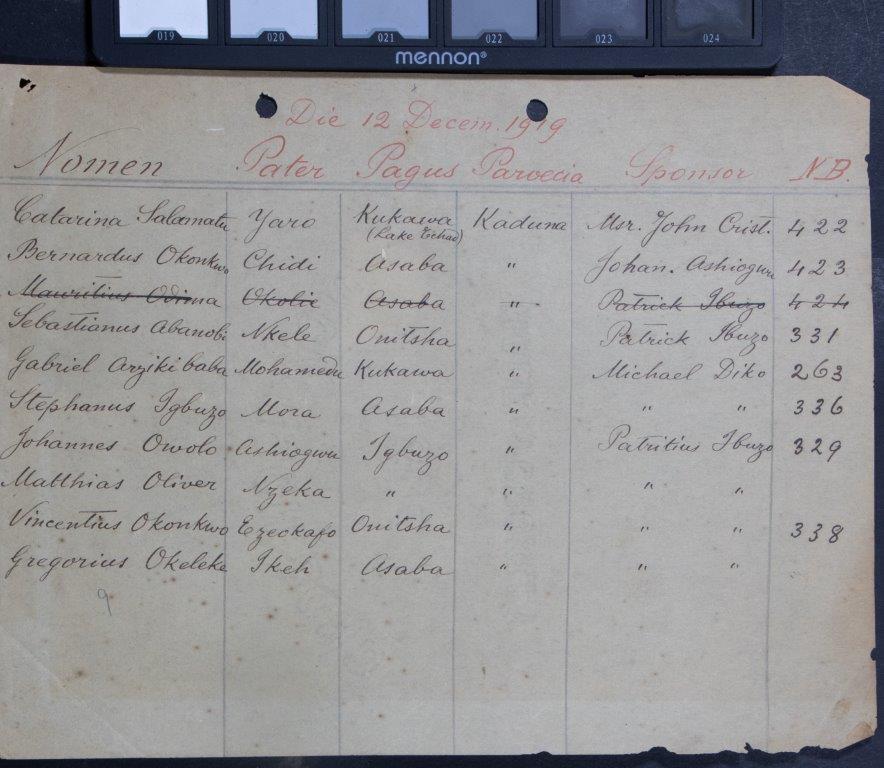 019 020 021 022 023 024
mennon®
Die 12 Decem. 1919
Nomen Pater Pagus Paroecia Sponsor N.B.
Catarina Salamatu Yaro Kukawa Kaduna Msr. John Crist. 422
(Lake Tchad)
Bernardus Okonkwo Chidi Asaba " Johan. Ashiogwu 423
Mauritius Odinma Okolie Asaba " Patrick Ibuzo 424
Sebastianus Abanobi Nkele Onitsha " Patrick Ibuzo 331
Gabriel Arzikibaba Mohamedu Kukawa " Michael Diko 263
Stephanus Igbuzo Mora Asaba " " " 336
Johannes Owolo Ashiogwu Igbuzo " Patritius Ibuzo 329
Matthias Oliver Nzeka " " " "
Vincentius Okonkwo Ezeokafo Onitsha " " " 338
Gregorius Okeleke Ikeh Asaba " " "
9